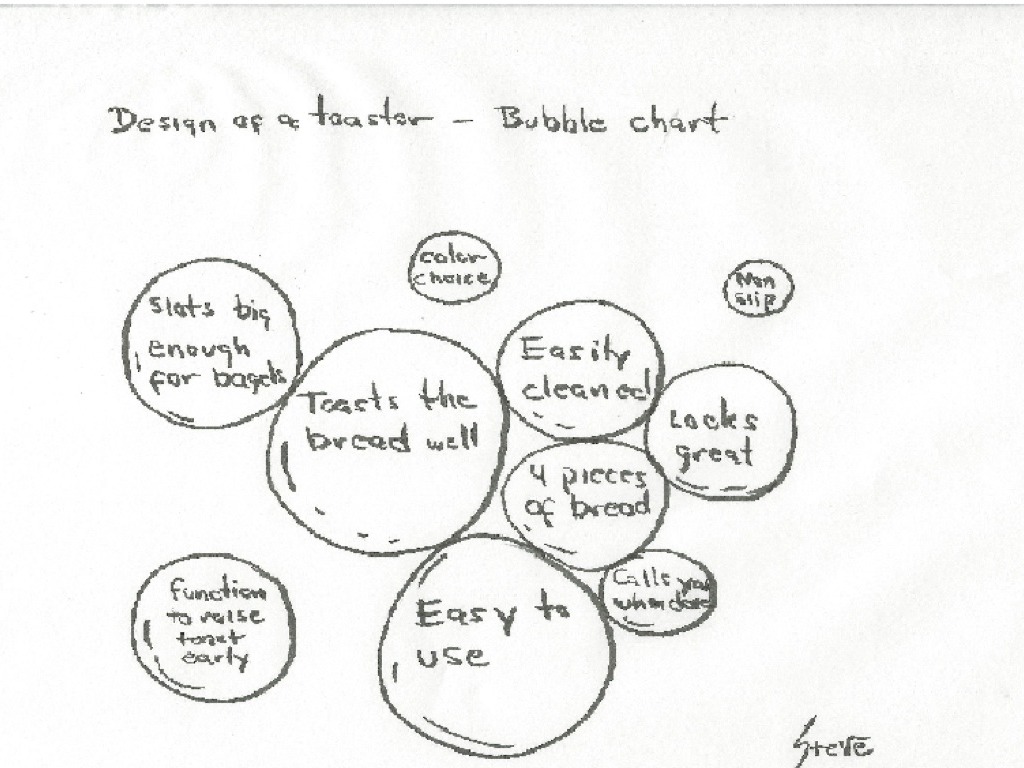 Design of a toaster - Bubble chart
color
choice
Non
slip
Slots big
enough
for bagels
Easily
cleaned
Toasts the
bread well
Looks
great
4 pieces
of bread
Function
to raise
toast
early
Calls you
when done
Easy to
use
Steve